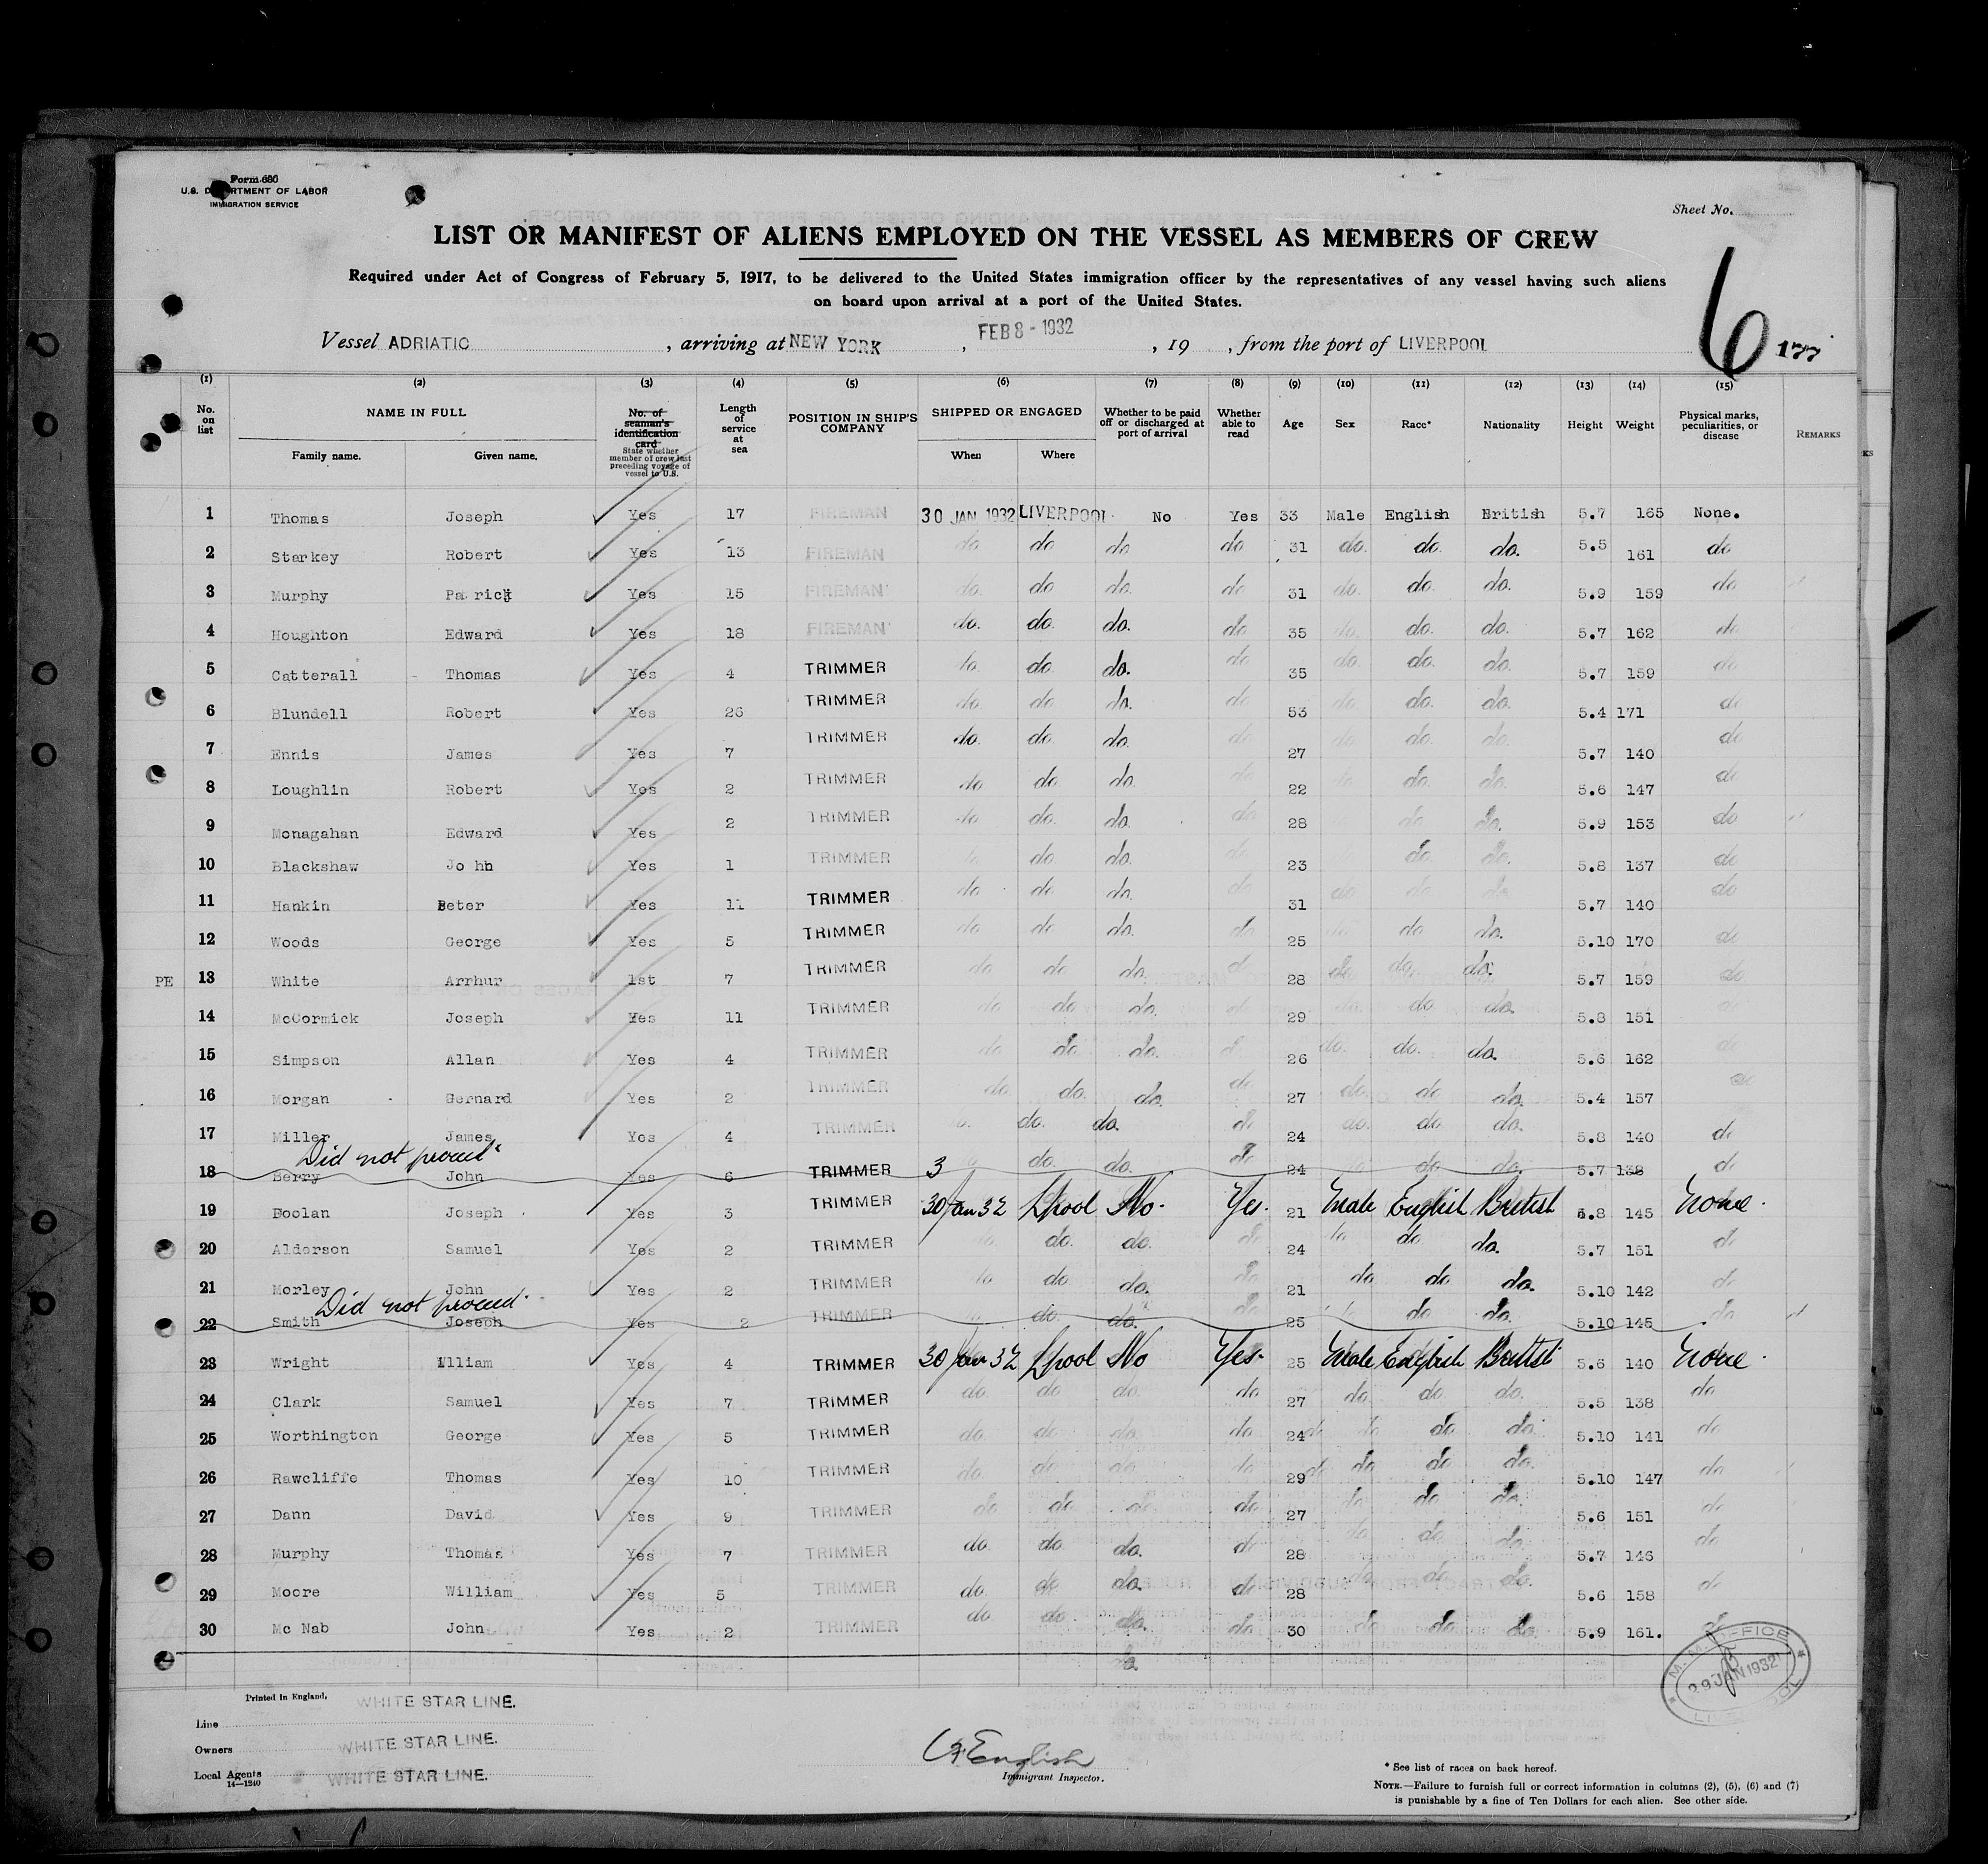 Form 680
U.S. DEPARTMENT OF LABOR
IMMIGRATION SERVICE
Sheet No.
LIST OR MANIFEST OF ALIENS EMPLOYED ON THE VESSEL AS MEMBERS OF CREW
Required under Act of Congress of February 5, 1917, to be delivered to the United States immigration officer by the representatives of any vessel having such aliens
on board upon arrival at a port of the United States.
6 177
Vessel ADRIATIC, arriving at NEW YORK, FEB 8 - 1932, 19 , from the port of LIVERPOOL
(1) (2) (3) (4) (5) (6) (7) (8) (9) (10) (11) (12) (13) (14) (15)
No. on list NAME IN FULL Family name. Given name. No. of seaman's identification card State whether member of crew last preceding voyage of vessel to U.S. Length of service at sea POSITION IN SHIP'S COMPANY SHIPPED OR ENGAGED When Where Whether to be paid off or discharged at port of arrival Whether able to read Age Sex Race* Nationality Height Weight Physical marks, peculiarities, or disease REMARKS
1 Thomas Joseph Yes 17 FIREMAN 30 JAN 1932 LIVERPOOL No Yes 33 Male English British 5.7 165 None.
2 Starkey Robert Yes 13 FIREMAN do do do do 31 do. do. do. 5.5 161 do
3 Murphy Pa rick Yes 15 FIREMAN do. do do. do 31 do. do. do. 5.9 159 do
4 Houghton Edward Yes 18 FIREMAN do. do. do. do 35 do. do. do. 5.7 162 do
5 Catterall Thomas Yes 4 TRIMMER do. do. do. do 35 do. do. do. 5.7 159 do
6 Blundell Robert Yes 26 TRIMMER do. do do. do 53 do. do. do. 5.4 171 do
7 Ennis James Yes 7 TRIMMER do. do. do. do 27 do do. do. 5.7 140 do
8 Loughlin Robert Yes 2 TRIMMER do do. do. do 22 do do. do. 5.6 147 do
9 Monagahan Edward Yes 2 TRIMMER do do. do. do 28 do do. 5.9 153 do
10 Blackshaw Jo hn Yes 1 TRIMMER do do. do. do 23 do do. 5.8 137 do
11 Hankin Peter Yes 11 TRIMMER do do do. do 31 do do do 5.7 140 do
12 Woods George Yes 5 TRIMMER do do do. do 25 do do do. 5.10 170 do
PE 13 White Arrhur 1st 7 TRIMMER do do do. do 28 do do. do. 5.7 159 do
14 McCormick Joseph Yes 11 TRIMMER do do do. do 29 do do do. 5.8 151
15 Simpson Allan Yes 4 TRIMMER do do do. d 26 do. do. do. 5.6 162 do
16 Morgan Bernard Yes 2 TRIMMER do. do. do. do 27 do do do. 5.4 157 do
17 Miller James Yes 4 TRIMMER do. do. do. do 24 do. do. do. 5.8 140 do
Did not proceed
18 Berry John Yes 6 TRIMMER 3 do. do. do 24 do do. 5.7 138 do
19 Doolan Joseph Yes 3 TRIMMER 30 Jan 32 Lpool No. Yes. 21 Male English British 5.8 145 None.
20 Alderson Samuel Yes 2 TRIMMER do. do. do. do 24 do do do. 5.7 151 do
21 Morley John Yes 2 TRIMMER do do do. do 21 do do do. 5.10 142 do
Did not proceed.
22 Smith Joseph Yes 2 TRIMMER do. do. do 25 do do. 5.10 145 do
23 Wright William Yes 4 TRIMMER 30 Jan 32 Lpool No Yes. 25 Male English British 5.6 140 None.
24 Clark Samuel Yes 7 TRIMMER do. do do. do 27 do do. do. 5.5 138 do
25 Worthington George Yes 5 TRIMMER do. do do do 24 do do do 5.10 141 do
26 Rawcliffe Thomas Yes 10 TRIMMER do do do do 29 do do do. 5.10 147 do
27 Dann David Yes 9 TRIMMER do do do do 27 do do do. 5.6 151 do
28 Murphy Thomas Yes 7 TRIMMER do. do. do. do 28 do do do. 5.7 146 do
29 Moore William Yes 5 TRIMMER do. do do. do 28 do do do. 5.6 158 do
30 Mc Nab John Yes 2 TRIMMER do. do. do. do 30 do do. do. 5.9 161. do
do.
Printed in England.
Line WHITE STAR LINE.
Owners WHITE STAR LINE.
Local Agents WHITE STAR LINE.
14—1240
English
Immigrant Inspector.
M.M. OFFICE
29 JAN 1932
* See list of races on back hereof.
NOTE.—Failure to furnish full or correct information in columns (2), (5), (6) and (7)
is punishable by a fine of Ten Dollars for each alien. See other side.